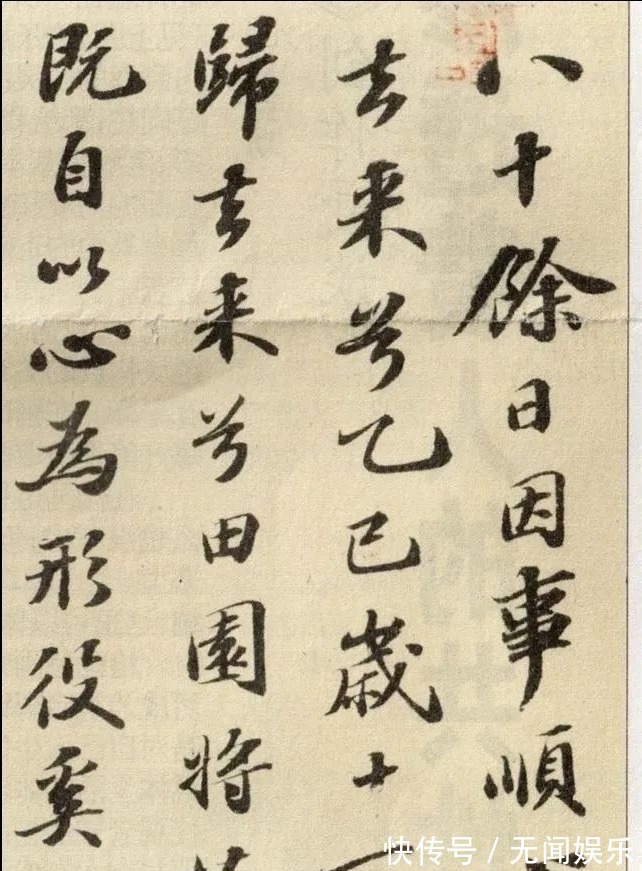 八十餘日因事順
去来兮乙巳歲十
歸去来兮田園將
既自以心為形役奚
快传号/无闻娱乐